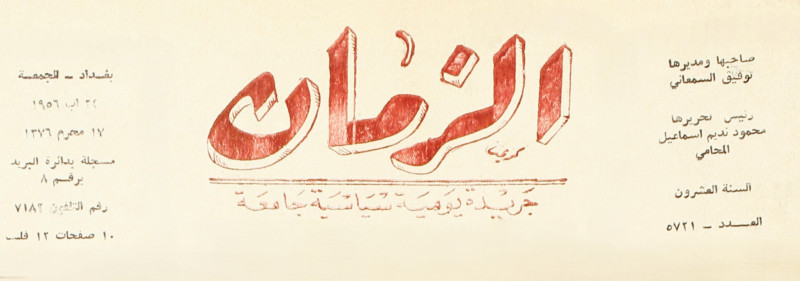 صاحبها ومديرها
توفيق السمعاني
رئيس تحريرها
محمود نديم اسماعيل
المحامي
السنة العشرون
العـدد - ٥٧٢١
الزمان
جريدة يومية سياسية جامعة
بغداد - الجمعة
٢٤ اب ١٩٥٦
١٧ محرم ١٣٧٦
مسجلة بدائرة البريد
برقم ٨
رقم التلفون ٧١٨٢
١٠ صفحات ١٢ فلس